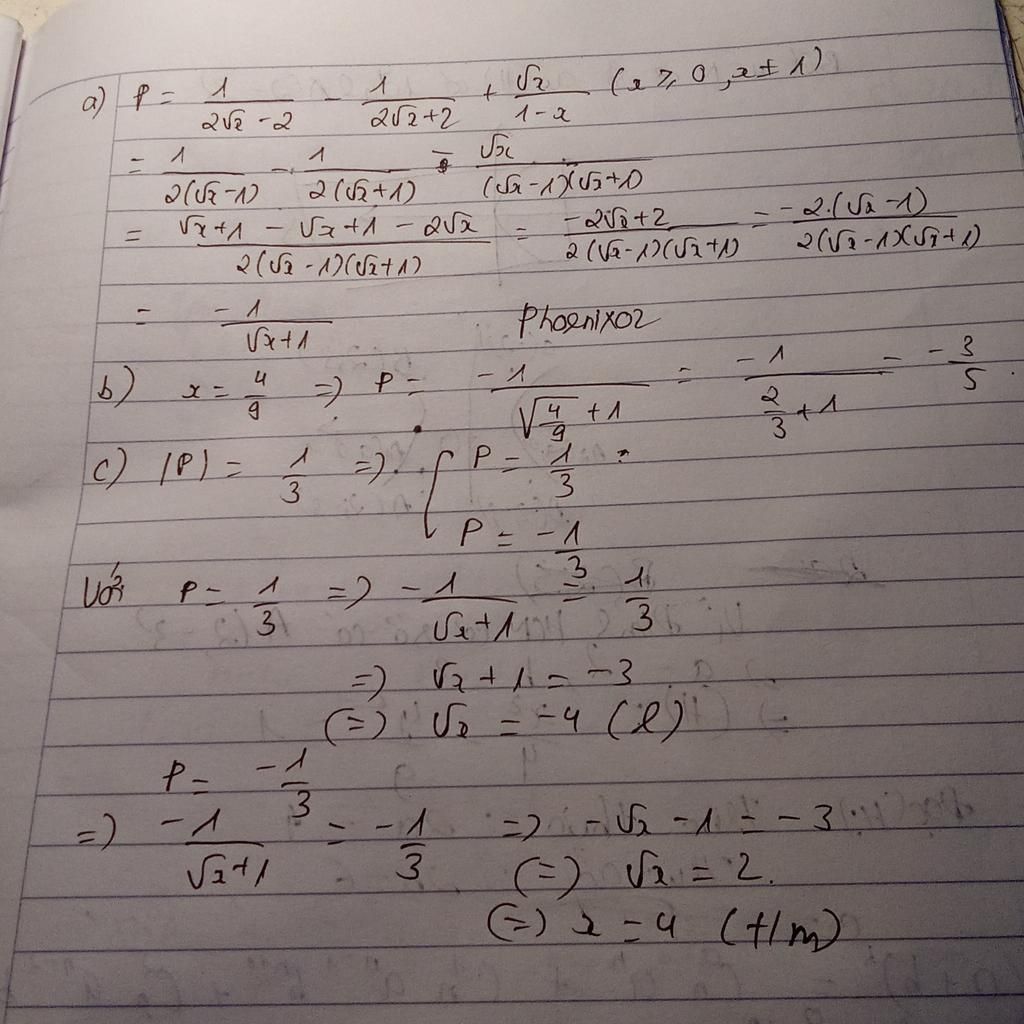 a) P = 1/(2√x - 2) - 1/(2√x + 2) + √x/(1 - x) (x ≥ 0, x ≠ 1)
= 1/(2(√x - 1)) - 1/(2(√x + 1)) - √x/((√x - 1)(√x + 1))
= (√x + 1 - √x + 1 - 2√x)/(2(√x - 1)(√x + 1)) = (-2√x + 2)/(2(√x - 1)(√x + 1)) = (-2.(√x - 1))/(2(√x - 1)(√x + 1))
= -1/(√x + 1) Phoenix02
b) x = 4/9 => P = -1/(√(4/9) + 1) = -1/(2/3 + 1) = -3/5.
c) |P| = 1/3 => [ P = 1/3
P = -1/3
Với P = 1/3 => -1/(√x + 1) = 1/3
=> √x + 1 = -3
(=) √x = -4 (l)
P = -1/3
=) -1/(√x + 1) = -1/3 => -√x - 1 = -3
(=) √x = 2.
(=) x = 4 (t/m)